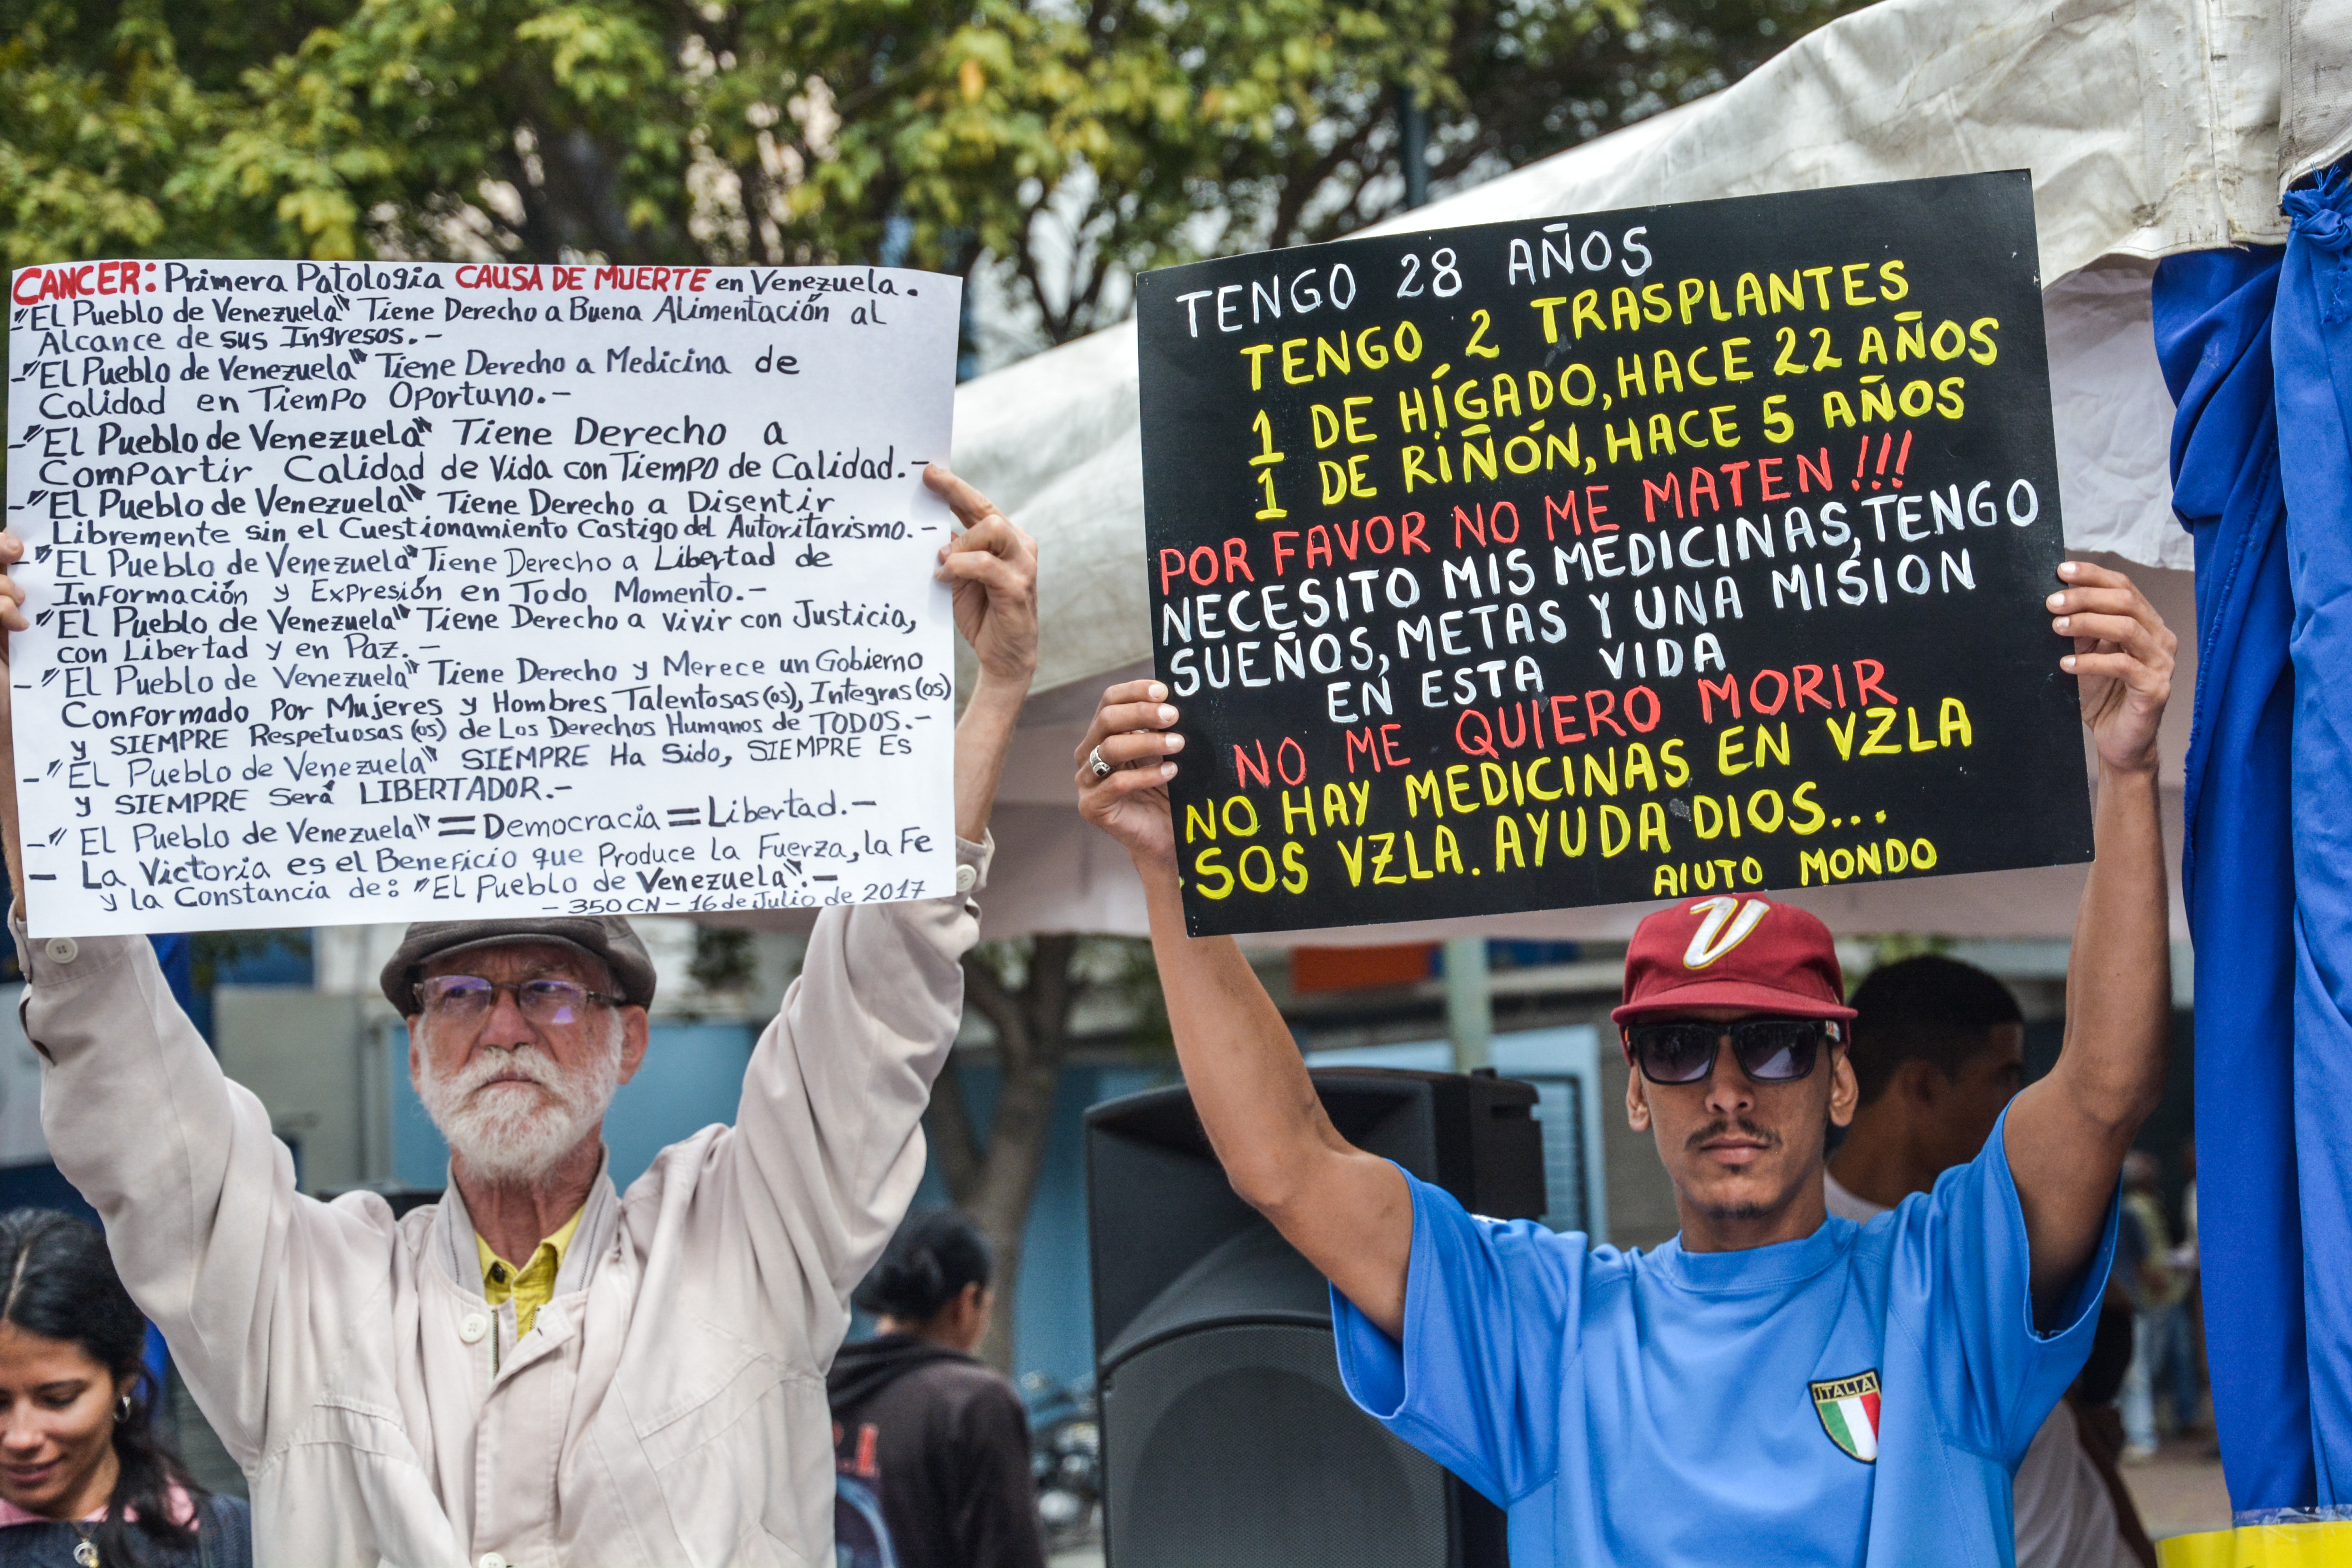 CANCER: Primera Patologia CAUSA DE MUERTE en Venezuela.
"El Pueblo de Venezuela" Tiene Derecho a Buena Alimentación al
Alcance de sus Ingresos.-
-"El Pueblo de Venezuela" Tiene Derecho a Medicina de
Calidad en Tiempo Oportuno.-
-"El Pueblo de Venezuela" Tiene Derecho a
Compartir Calidad de Vida con Tiempo de Calidad.-
-"El Pueblo de Venezuela" Tiene Derecho a Disentir
Libremente sin el Cuestionamiento Castigo del Autoritarismo.-
-"El Pueblo de Venezuela" Tiene Derecho a Libertad de
Información y Expresión en Todo Momento.-
"El Pueblo de Venezuela" Tiene Derecho a vivir con Justicia,
con Libertad y en Paz.-
-"El Pueblo de Venezuela" Tiene Derecho y Merece un Gobierno
Conformado Por Mujeres y Hombres Talentosas(os), Integras(os)
y SIEMPRE Respetuosas(os) de Los Derechos Humanos de TODOS.-
-"El Pueblo de Venezuela" SIEMPRE Ha Sido, SIEMPRE Es
y SIEMPRE Será LIBERTADOR.-
-"El Pueblo de Venezuela" = Democracia = Libertad.-
- La Victoria es el Beneficio que Produce la Fuerza, la Fe
y la Constancia de: "El Pueblo de Venezuela".-
- 350 CN - 16 de Julio de 2017
TENGO 28 AÑOS
TENGO 2 TRASPLANTES
1 DE HÍGADO, HACE 22 AÑOS
1 DE RIÑÓN, HACE 5 AÑOS
POR FAVOR NO ME MATEN!!!
NECESITO MIS MEDICINAS, TENGO
SUEÑOS, METAS Y UNA MISION
EN ESTA VIDA
NO ME QUIERO MORIR
NO HAY MEDICINAS EN VZLA
SOS VZLA. AYUDA DIOS...
AIUTO MONDO
V
ITALIA